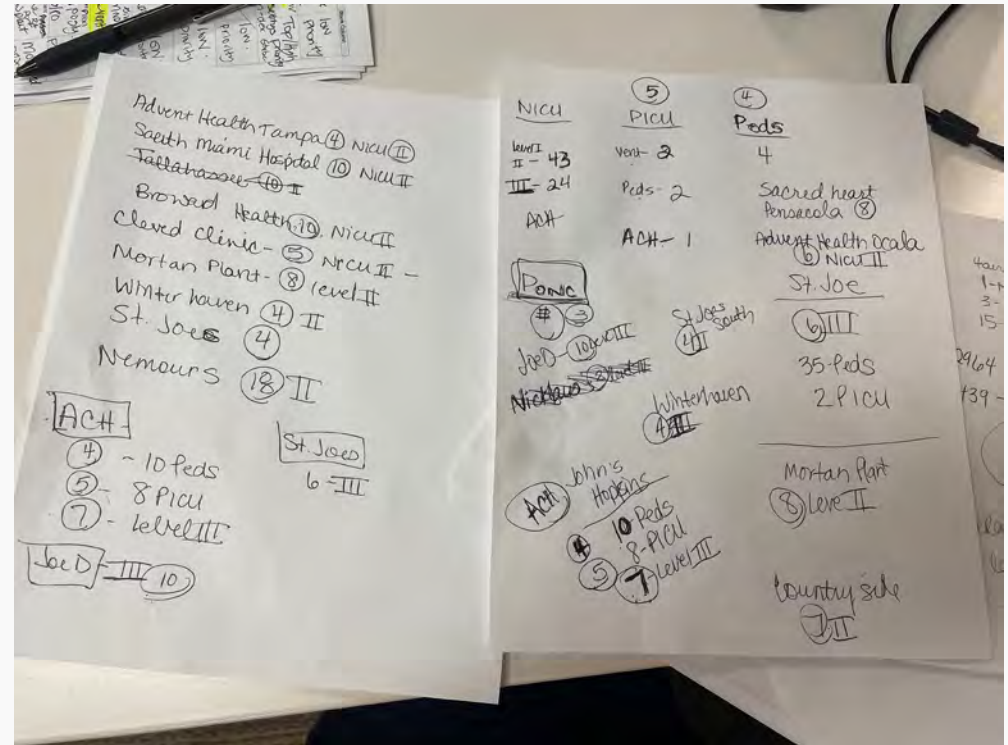 low
priority
low.
priority
low
Advent Health Tampa (4) NICU (II)
South Miami Hospital (10) NICU II
Tallahassee (10) II
Broward Health (10), NICU II
Cleved Clinic - (5) NICU II -
Mortan Plant - (8) level II
Winter haven (4) II
St. Joes (4)
Nemours (18) II
ACH
(4) - 10 Peds
(5) - 8 PICU
(7) - level III
St. Joes
6 - III
Joe D - III (10)
NICU
level I
II - 43
III - 24
ACH
(5)
PICU
Vent - 2
Peds - 2
ACH - 1
(4)
Peds
4
Sacred heart
Pensacola (8)
Advent Health Ocala
(6) NICU II
St. Joe
(6) III
35 - Peds
2 PICU
# (3)
JoeD - (10) level III
Nicklaus
St Joes
South
(4) II
Winterhaven
(4) III
ACH John's
Hopkins
(4) 10 Peds
(5) 8 - PICU
(7) Level III
Mortan Plant
(8) Level II
Country side
(7) II
15
2964